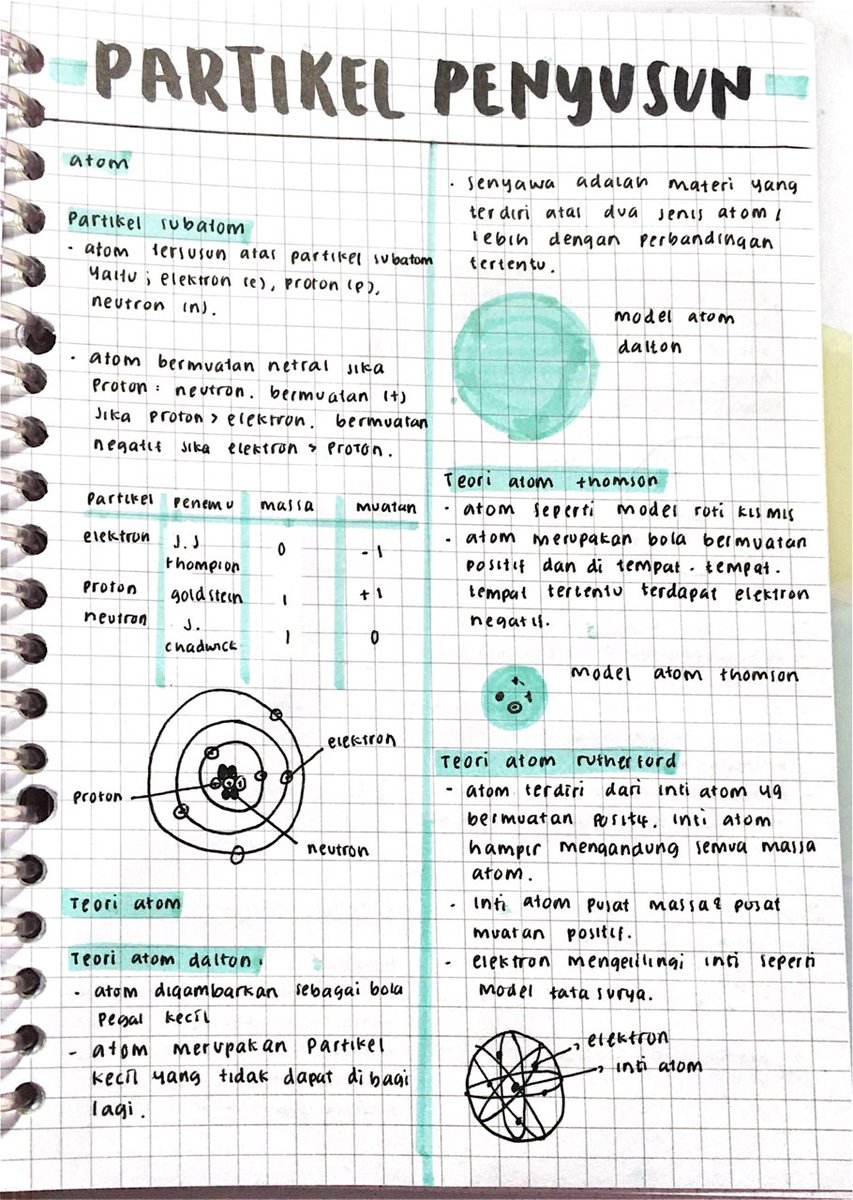 PARTIKEL PENYUSUN
atom
Partikel subatom
- atom tersusun atas partikel subatom
yaitu ; elektron (e), proton (p),
neutron (n).
- atom bermuatan netral jika
Proton : neutron. bermuatan (+)
jika proton > elektron. bermuatan
negatif jika elektron > proton.
Partikel penemu massa muatan
elektron J.J thompson 0 -1
proton goldstein 1 +1
neutron J. chadwick 1 0
elektron
proton
neutron
Teori atom
Teori atom dalton.
- atom digambarkan sebagai bola
pegal kecil
- atom merupakan partikel
kecil yang tidak dapat di bagi
lagi.
- senyawa adalah materi yang
terdiri atas dua jenis atom /
lebih dengan perbandingan
tertentu.
model atom
dalton
Teori atom thomson
- atom seperti model roti kismis
- atom merupakan bola bermuatan
positif dan di tempat-tempat.
tempat tertentu terdapat elektron
negatif.
model atom thomson
Teori atom rutherford
- atom terdiri dari inti atom yg
bermuatan positif. inti atom
hampir mengandung semua massa
atom.
- inti atom pusat massa & pusat
muatan positif.
- elektron mengelilingi inti seperti
model tata surya.
elektron
inti atom